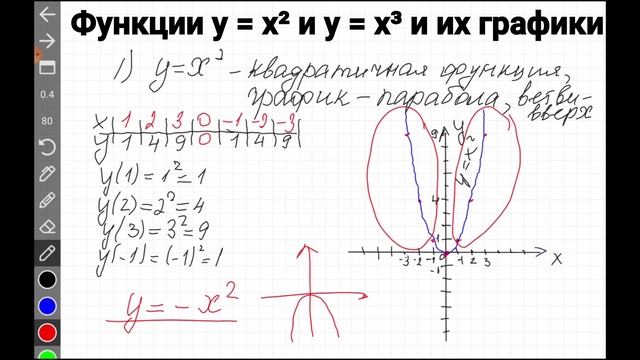 Функции y = x² и y = x³ и их графики
0.4
80
1) y=x² - квадратичная функция,
график - парабола, ветви-
вверх
x | 1 | 2 | 3 | 0 | -1 | -2 | -3 |
y | 1 | 4 | 9 | 0 | 1 | 4 | 9 |
y(1)=1²=1
y(2)=2²=4
y(3)=3²=9
y(-1)=(-1)²=1
y=-x²
y
9
y=x²
4
1
-3 -2 -1 0 1 2 3 x
-1